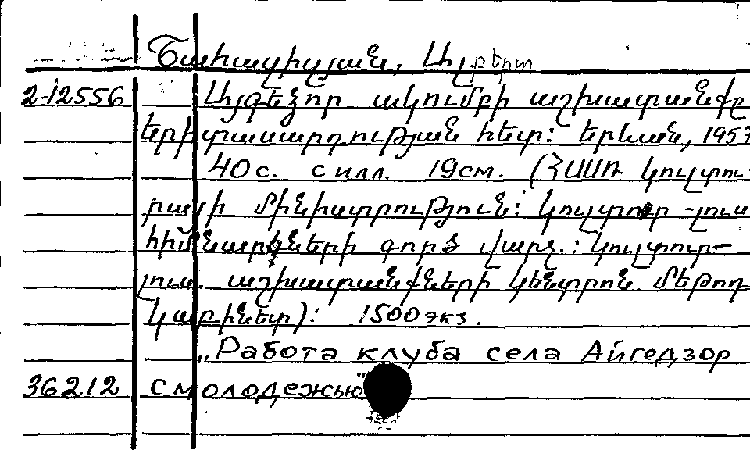 Շահազիզյան, Ալբերտ
2-12556 Այգեձոր ակումբի աշխատանքը
երիտասարդության հետ: Երևան, 1957
40с. с илл. 19см. (ՀՍՍՌ Կուլտու-
րայի մինիստրություն: Կուլտուր-լուս
հիմնարկների գործ վարչ.: Կուլտուր-
լուս. աշխատանքների կենտրոն. մեթոդ
կաբինետ): 1500экз.
„Работа клуба села Айгедзор
36212 с молодежью"